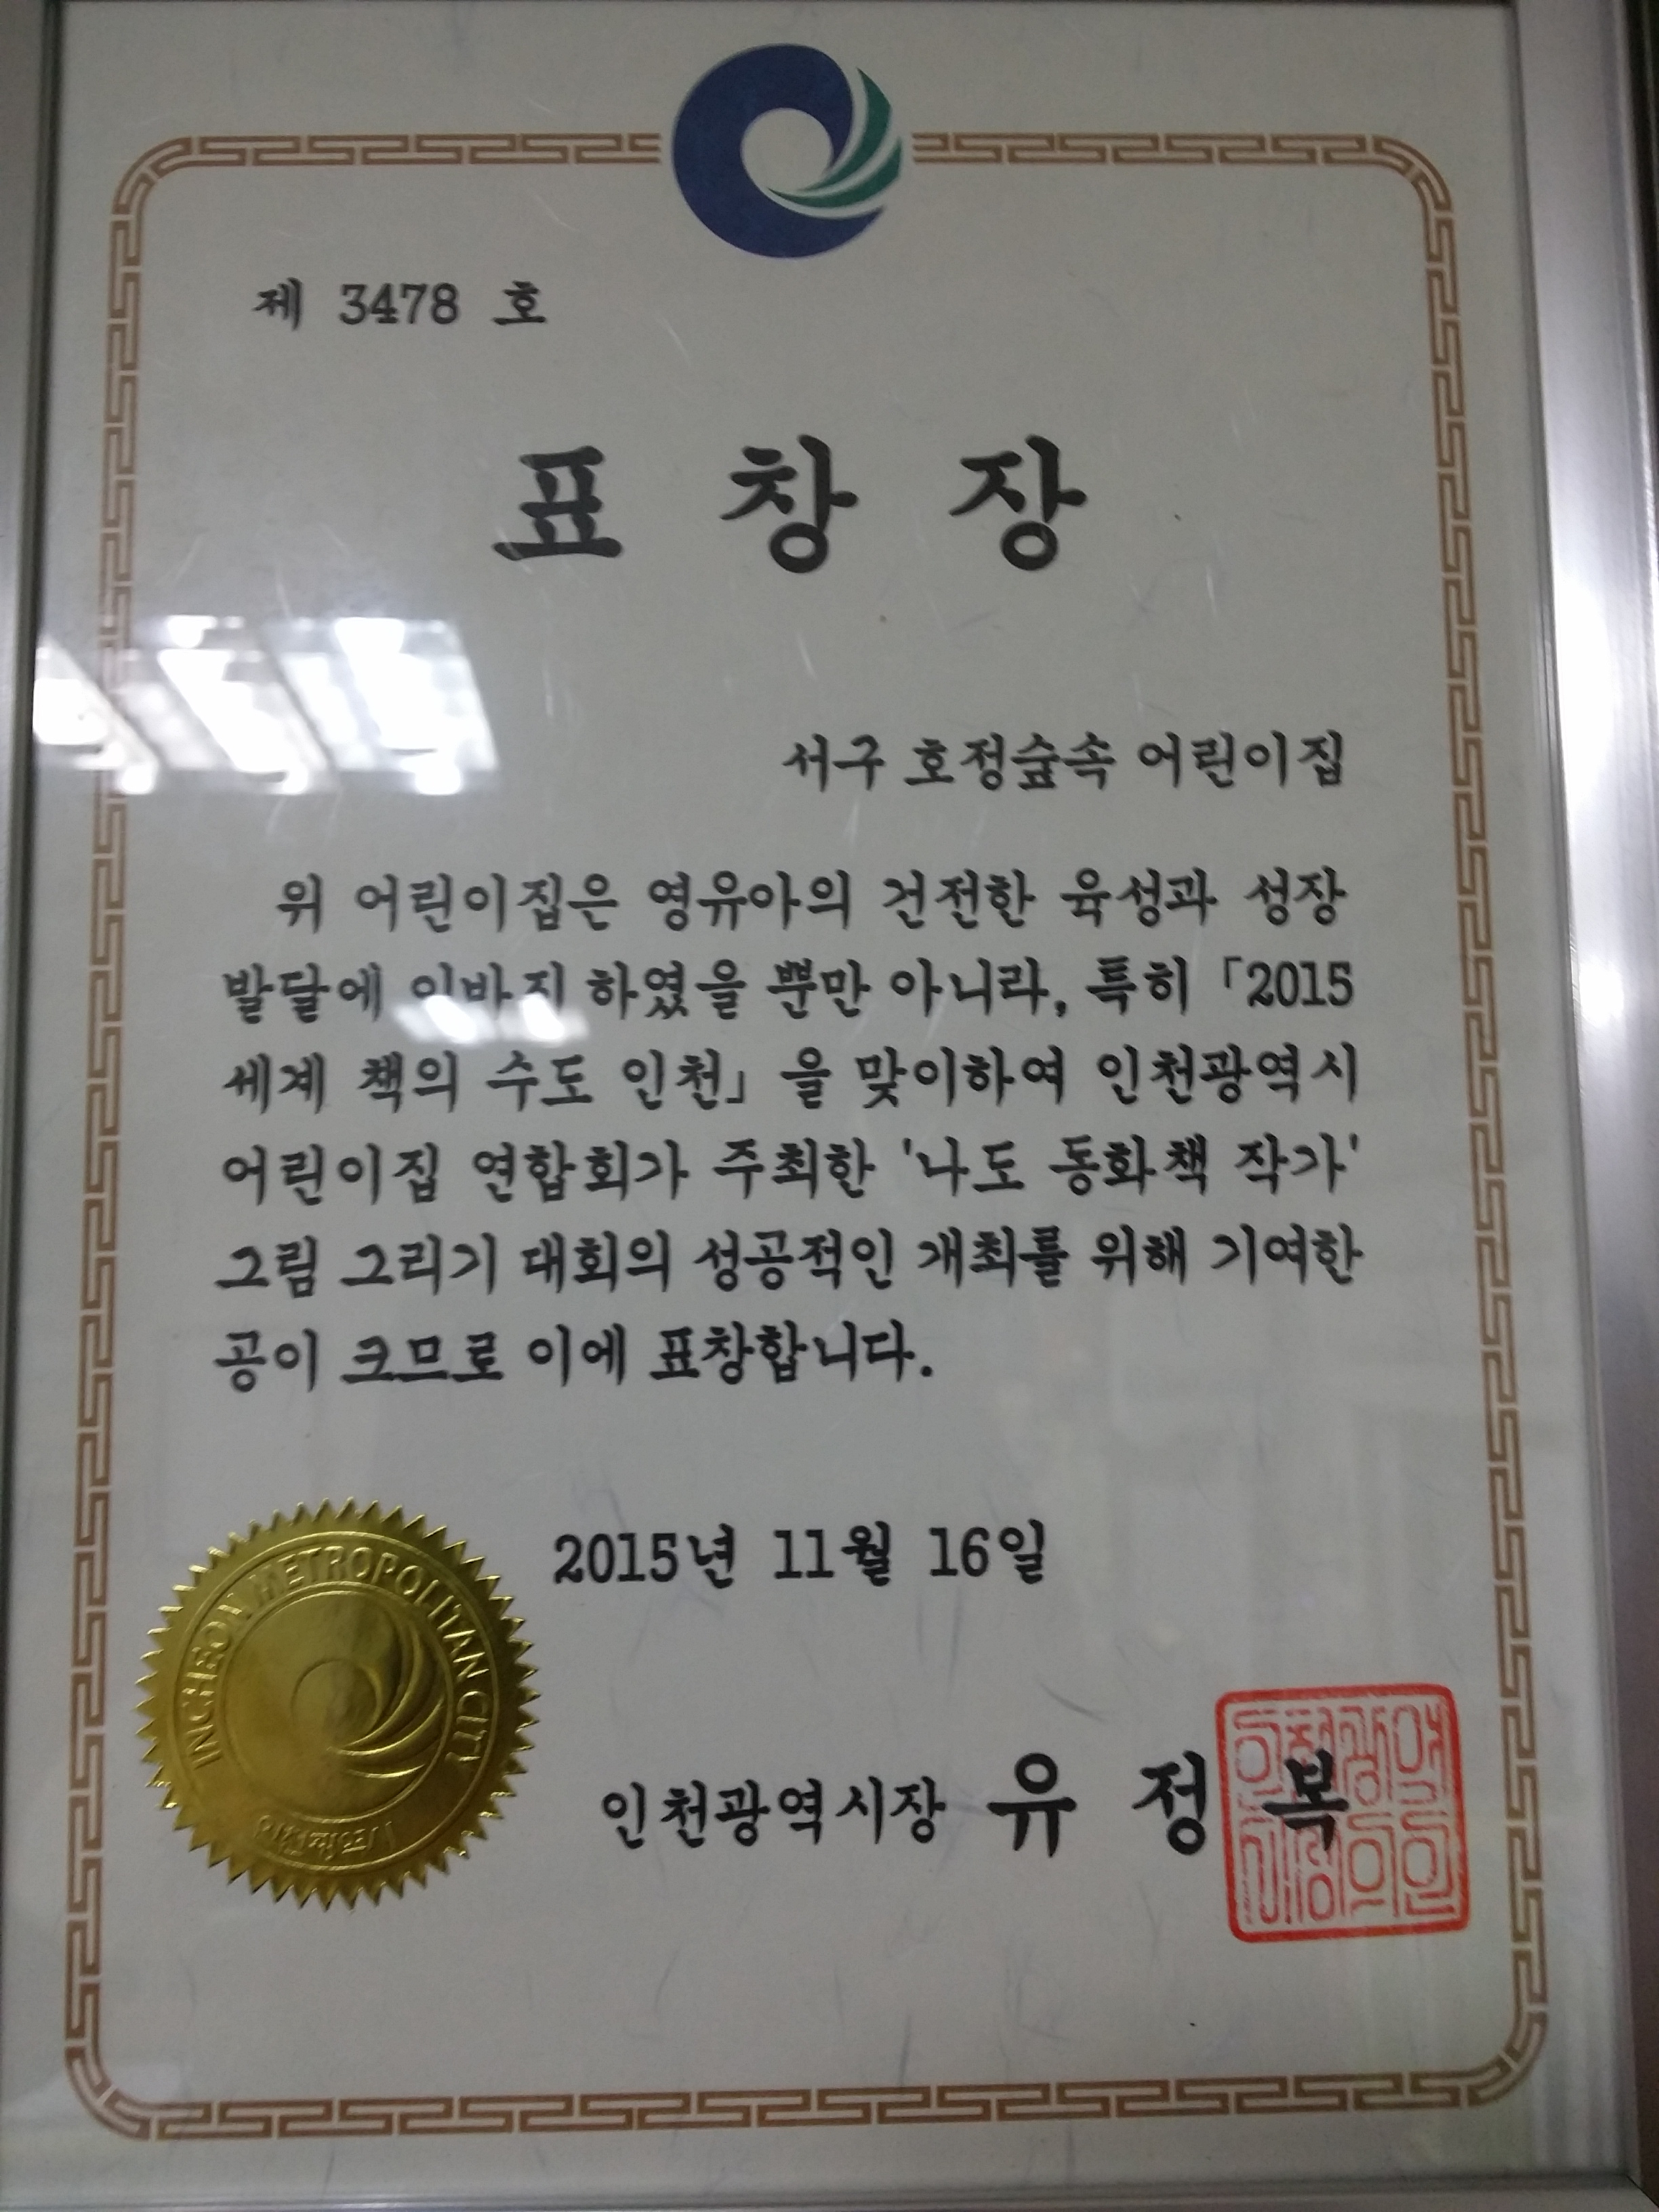 제 3478 호
표 창 장
서구 호정숲속 어린이집
위 어린이집은 영유아의 건전한 육성과 성장
발달에 이바지 하였을 뿐만 아니라, 특히 「2015
세계 책의 수도 인천」 을 맞이하여 인천광역시
어린이집 연합회가 주최한 '나도 동화책 작가'
그림 그리기 대회의 성공적인 개최를 위해 기여한
공이 크므로 이에 표창합니다.
2015년 11월 16일
INCHEON METROPOLITAN CITY
인천광역시
인천광역시장 유 정 복
인천광역
시장의인